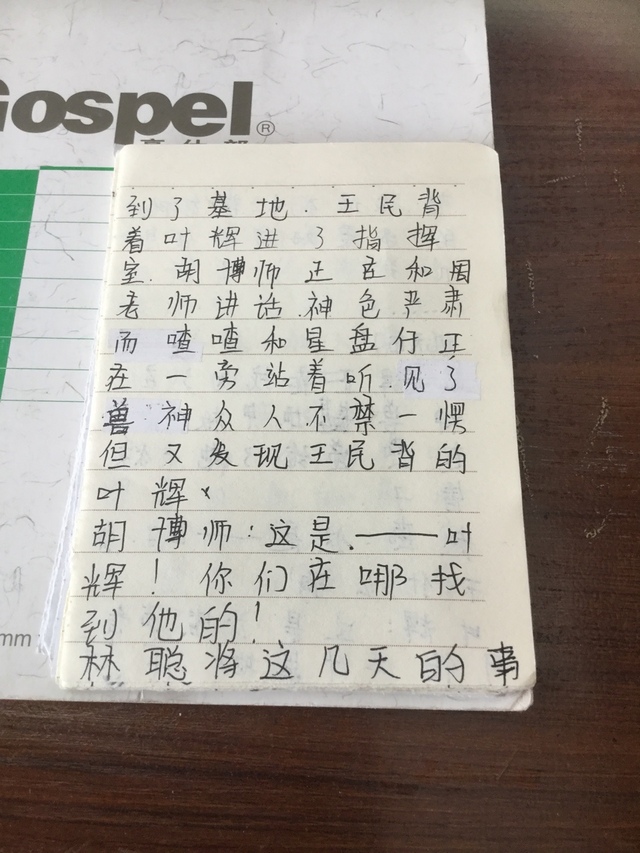 Gospel®
到了基地.王民背
着叶辉进了指挥
室.胡博师正在和周
老师讲话.神色严肃
而喳喳和星盘仔正
在一旁站着听.见了
兽神众人不禁一愣
但又发现王民背的
叶辉、
胡博师:这是.——叶
辉!你们在哪找
到他的!
林聪将这几天的事
mm